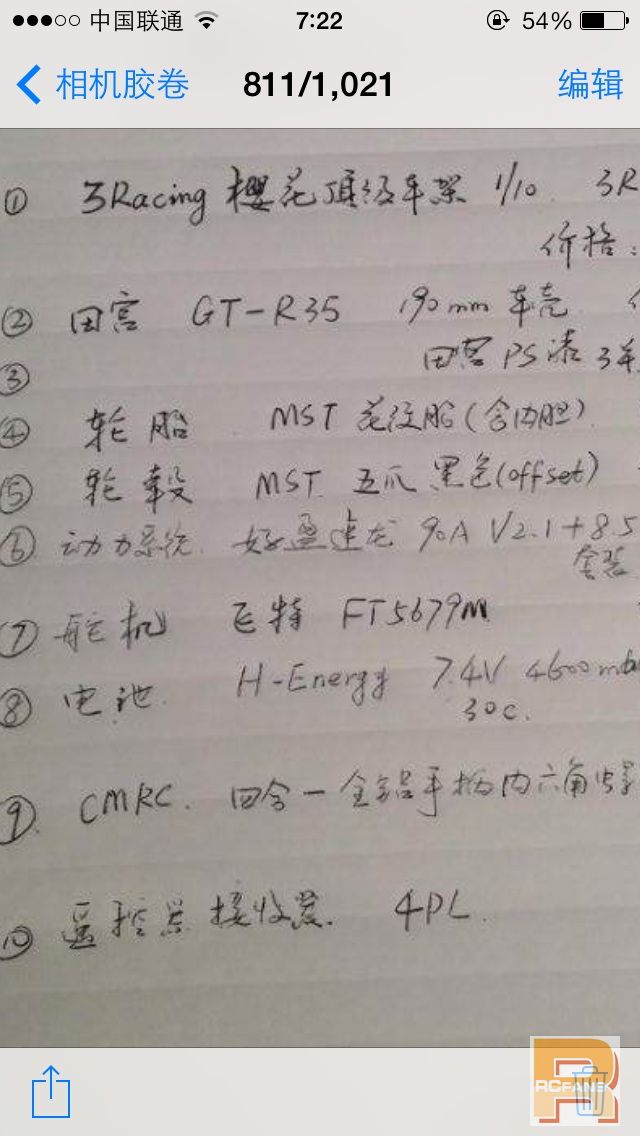 中国联通 7:22 54%
相机胶卷 811/1,021 编辑
① 3Racing 樱花顶级车架 1/10. 3R
价格:
② 田宫 GT-R35 190mm 车壳.
③ 田宫 PS漆 3
④ 轮胎 MST 花纹胎(含内胆)
⑤ 轮毂 MST 五爪 黑色(offset)
⑥ 动力系统. 好盈速龙 90A V2.1+8.5
套装
⑦ 舵机 飞特 FT5679M
⑧ 电池. H-Energy 7.4V 4600mba
30c.
⑨. CMRC. 四合一全铝手柄内六角
⑩ 遥控器 接收器. 4PL.
RCFANS